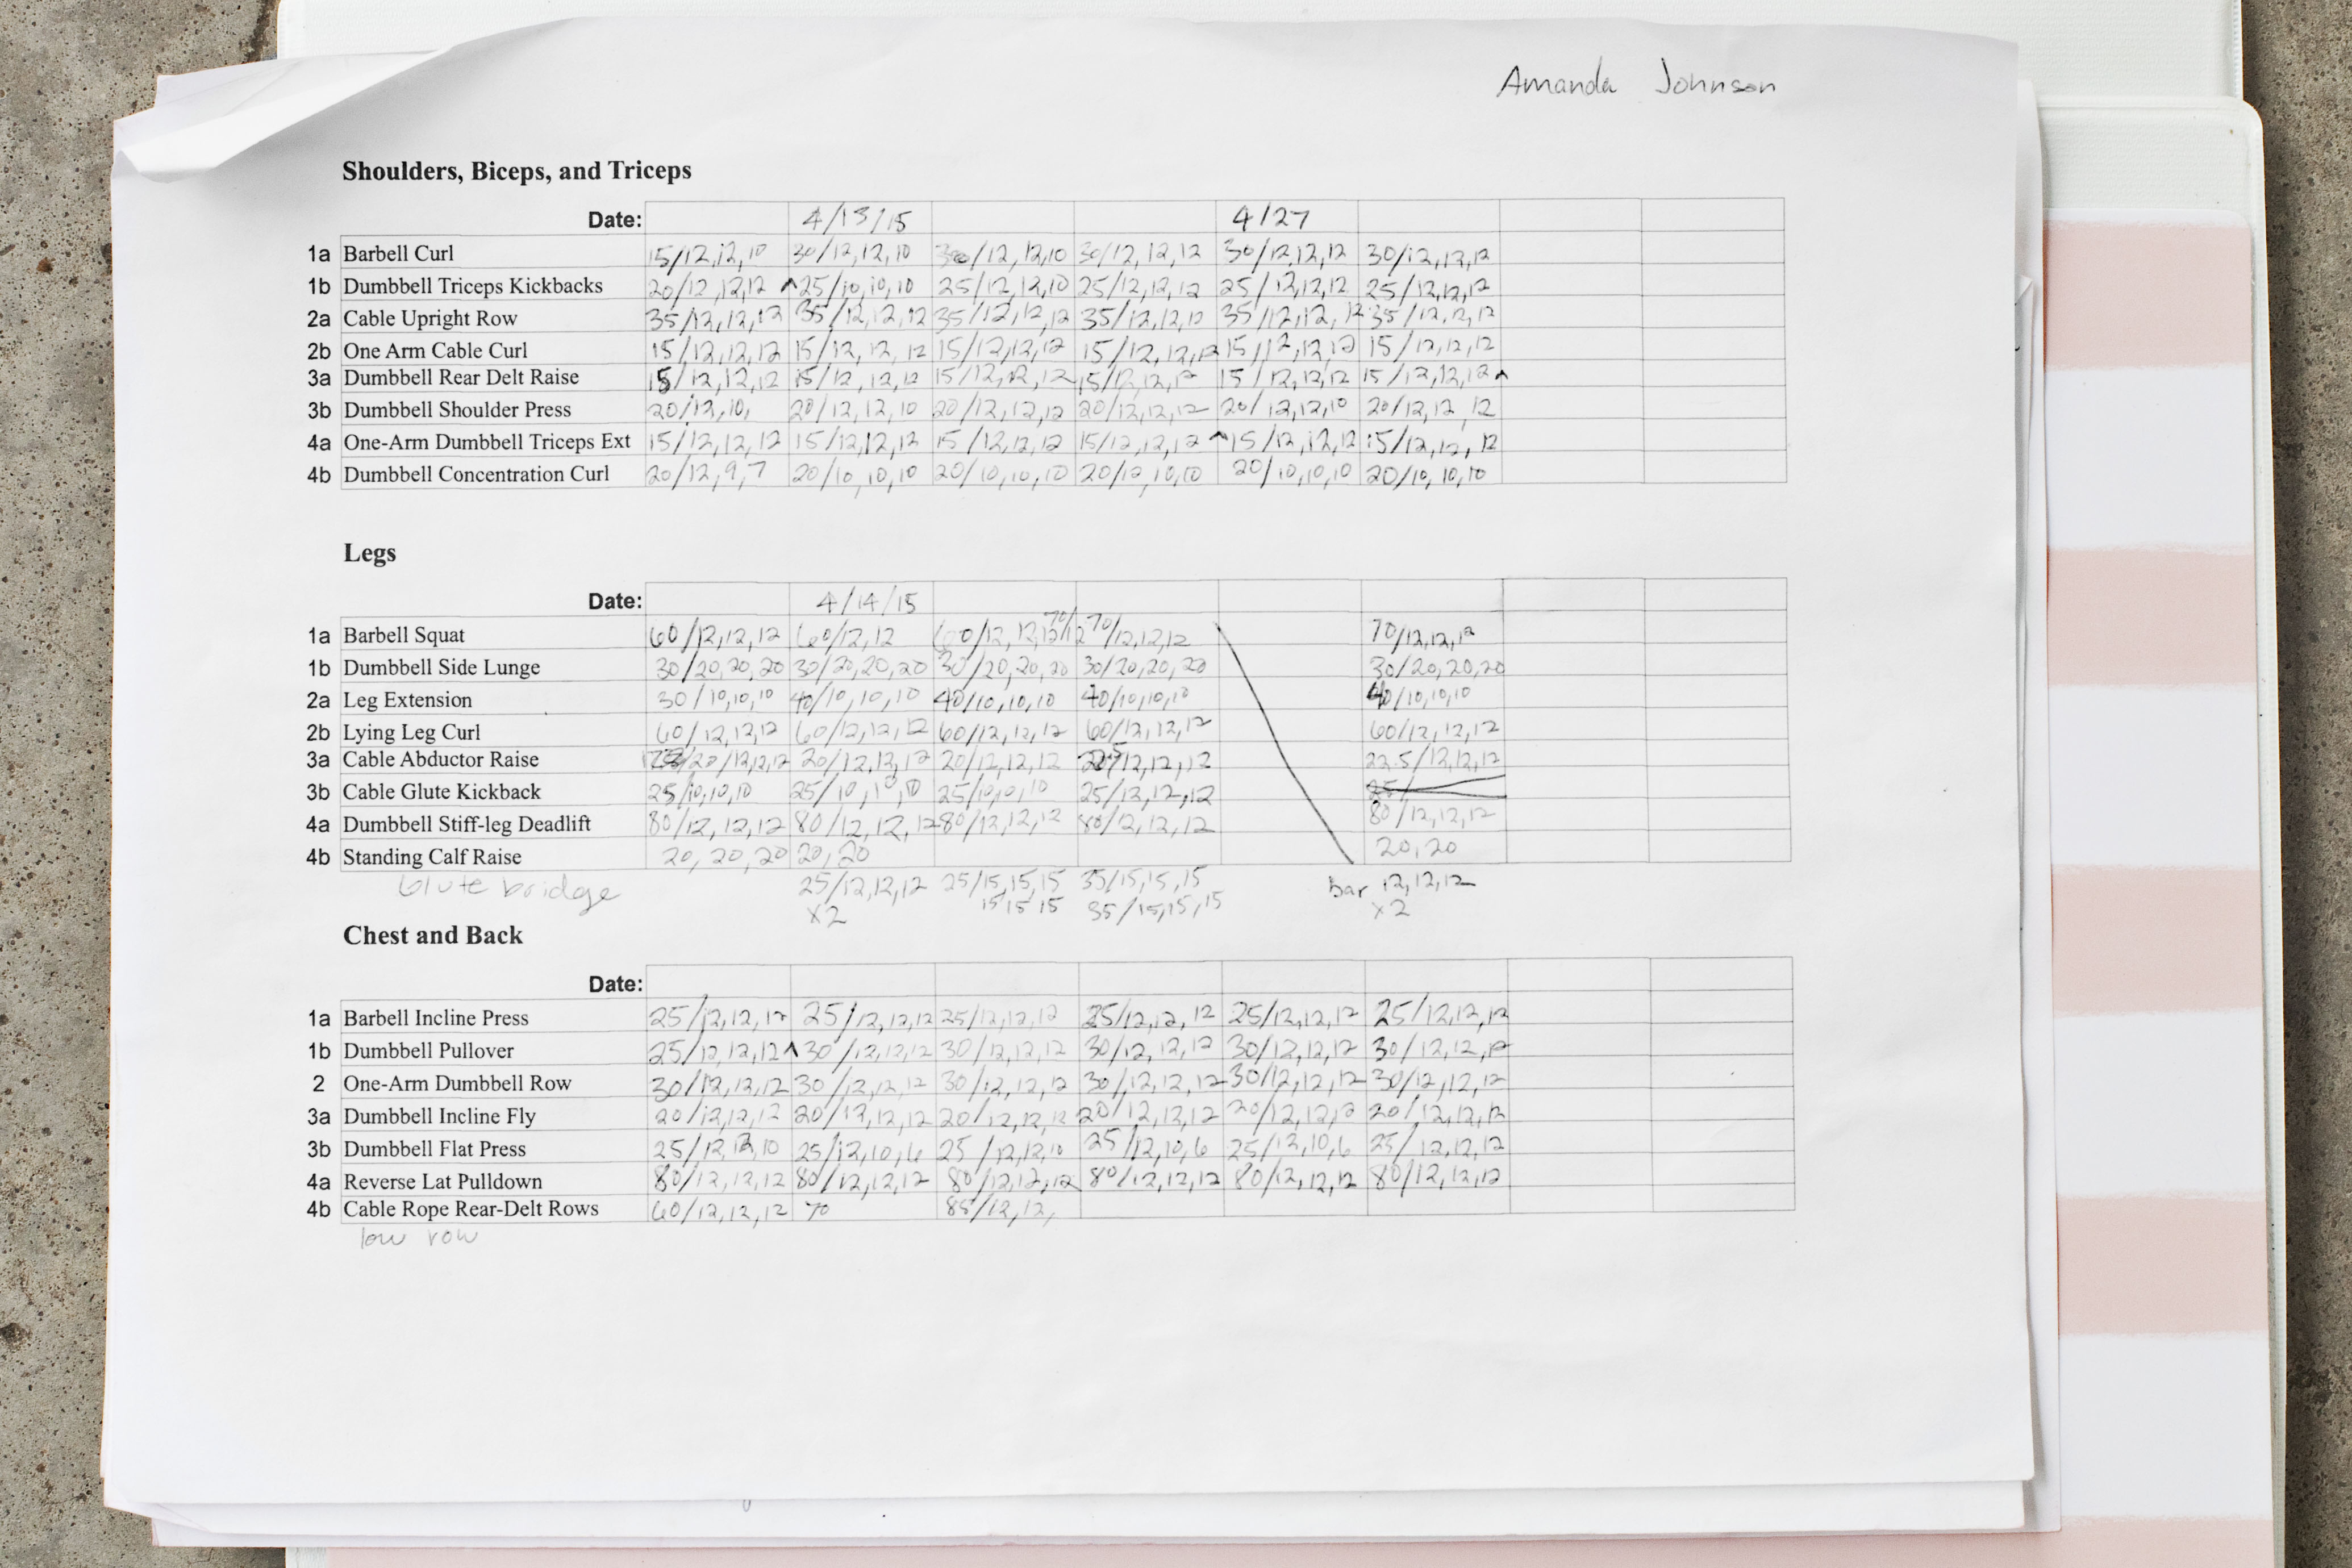 Amanda Johnson
Shoulders, Biceps, and Triceps
Date: 4/13/15 4/27
1a Barbell Curl 15/12,12,10 30/12,12,10 30/12,12,10 30/12,12,12 30/12,12,12 30/12,12,12
1b Dumbbell Triceps Kickbacks 20/12,12,12 ^25/10,10,10 25/12,12,10 25/12,12,12 25/12,12,12 25/12,12,12
2a Cable Upright Row 35/12,12,12 35/12,12,12 35/12,12,12 35/12,12,12 35/12,12,12 35/12,12,12
2b One Arm Cable Curl 15/12,12,12 15/12,12,12 15/12,12,12 15/12,12,12 15/12,12,12 15/12,12,12
3a Dumbbell Rear Delt Raise 15/12,12,12 15/12,12,12 15/12,12,12 15/12,12,12 15/12,12,12 15/12,12,12^
3b Dumbbell Shoulder Press 20/12,10, 20/12,12,10 20/12,12,12 20/12,12,12 20/12,12,10 20/12,12,12
4a One-Arm Dumbbell Triceps Ext 15/12,12,12 15/12,12,12 15/12,12,12 15/12,12,12 ^15/12,12,12 15/12,12,12
4b Dumbbell Concentration Curl 20/12,9,7 20/10,10,10 20/10,10,10 20/12,10,10 20/10,10,10 20/10,10,10
Legs
Date: 4/14/15
1a Barbell Squat 60/12,12,12 60/12,12 60/12,12,12 70/12 70/12,12,12 70/12,12,12
1b Dumbbell Side Lunge 30/20,20,20 30/20,20,20 30/20,20,20 30/20,20,20 30/20,20,20
2a Leg Extension 30/10,10,10 40/10,10,10 40/10,10,10 40/10,10,10 40/10,10,10
2b Lying Leg Curl 60/12,12,12 60/12,12,12 60/12,12,12 60/12,12,12 60/12,12,12
3a Cable Abductor Raise 20/12,12,12 20/12,12,12 20/12,12,12 22.5/12,12,12 22.5/12,12,12
3b Cable Glute Kickback 25/10,10,10 25/10,10,10 25/10,10,10 25/12,12,12 25/
4a Dumbbell Stiff-leg Deadlift 80/12,12,12 80/12,12,12 80/12,12,12 80/12,12,12 80/12,12,12
4b Standing Calf Raise 20,20,20 20,20 20,20
Glute bridge 25/12,12,12 25/15,15,15 35/15,15,15 bar 12,12,12
x2 15 15 15 35/15,15,15 x2
Chest and Back
Date:
1a Barbell Incline Press 25/12,12,12 25/12,12,12 25/12,12,12 25/12,12,12 25/12,12,12 25/12,12,12
1b Dumbbell Pullover 25/12,12,12 ^30/12,12,12 30/12,12,12 30/12,12,12 30/12,12,12 30/12,12,12
2 One-Arm Dumbbell Row 30/12,12,12 30/12,12,12 30/12,12,12 30/12,12,12 30/12,12,12 30/12,12,12
3a Dumbbell Incline Fly 20/12,12,12 20/12,12,12 20/12,12,12 20/12,12,12 20/12,12,12 20/12,12,12
3b Dumbbell Flat Press 25/12,12,10 25/12,10,6 25/12,12,10 25/12,10,6 25/12,10,6 25/12,12,12
4a Reverse Lat Pulldown 80/12,12,12 80/12,12,12 80/12,12,12 80/12,12,12 80/12,12,12 80/12,12,12
4b Cable Rope Rear-Delt Rows 60/12,12,12 70 85/12,12,
low row